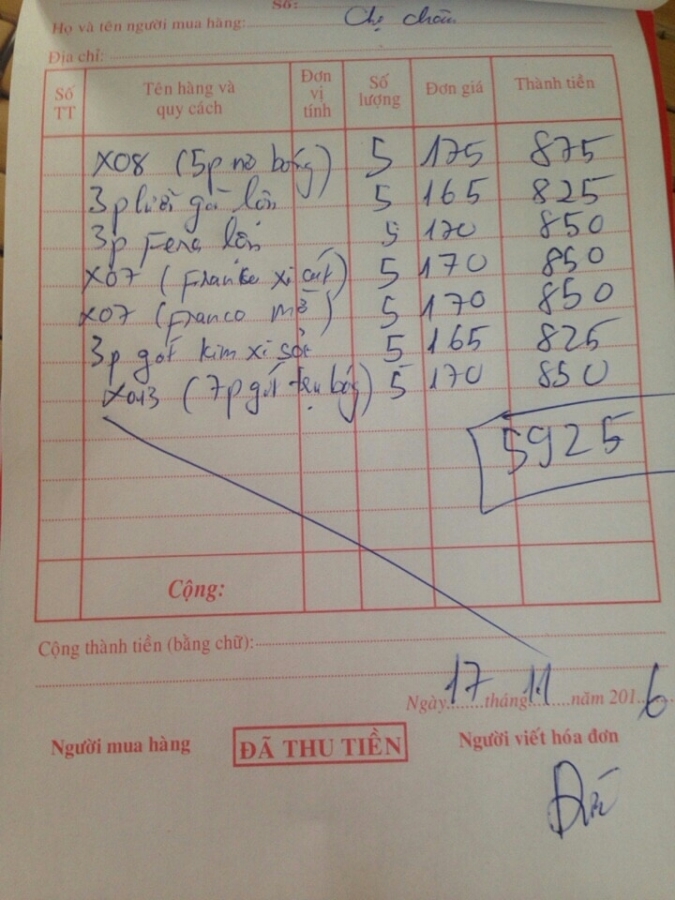 Số:
Họ và tên người mua hàng: Chị Châu
Địa chỉ:
Số TT Tên hàng và quy cách Đơn vị tính Số lượng Đơn giá Thành tiền
X08 (5p nơ bóng) 5 175 875
3p lưới gót lớn 5 165 825
3p Fera lớn 5 170 850
X07 (Franko xi cát) 5 170 850
X07 (Franco mờ) 5 170 850
3p gót kim xi sóc 5 165 825
X043 (7p gót bóng) 5 170 850
5925
Cộng:
Cộng thành tiền (bằng chữ):
Ngày 17 tháng 11 năm 2016
Người mua hàng ĐÃ THU TIỀN Người viết hóa đơn